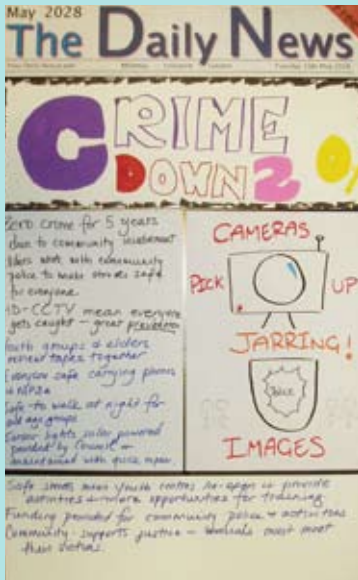 May 2028
The Daily News
Tuesday 13th May 2028
CRIME
DOWN 2 0
Zero crime for 5 years
due to community involvement
elders work with community
police to make streets safe
for everyone
HD-CCTV mean everyone
gets caught – great prevention
Youth groups & elders
review tapes together
Everyone safe carrying phones
Safe to walk at night for
all age groups
Sensor lights solar powered
provided by Council &
maintained with quick repair
CAMERAS
PICK UP
JARRING!
IMAGES
Safe streets mean youth centres re-open & provide
activities & more opportunities for training
Funding provided for community police & activities
Community supports justice – criminals must meet
their victims.